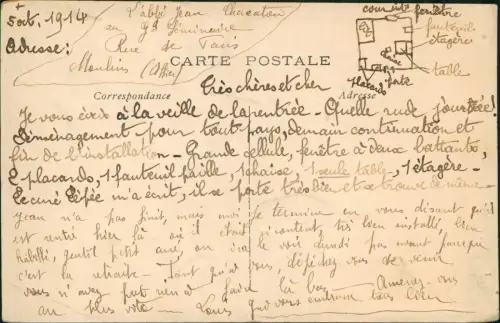 +
5 oct. 1914
Adresse:
L'abbé Jean Chacaton
au Gd Séminaire
Rue de Paris
Moulins (Allier)
cour et fenêtre
fauteuil
étagère
table
chaise
porte
placards
CARTE POSTALE
Correspondance
Adresse
Très chères et cher
Je vous écris à la veille de la rentrée - Quelle rude journée!
Déménagement pour tout pays, demain continuation et
fin de l'installation - Grande cellule, fenêtre à deux battants,
2 placards, 1 fauteuil paille, 1 chaise, 1 seule table, 1 étagère.
Le curé m'a écrit, il se porte très bien et se trouve de même -
Jean n'a pas finit, mais moi je termine en vous disant qu'il
est rentré hier là où il était si content, très bien installé, bien
habillé, gentil petit curé, on ira le voir lundi pas avant parceque
c'est la retraite - Tant qu'à vous, dépêchez vous de venir
vous n'avez plus rien à faire là bas - Amenez-vous
au plus vite -